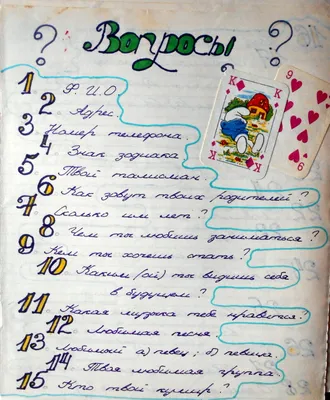 ? Вопросы ?
1 Ф.И.О.
2 Адрес.
3 Номер телефона.
4 Знак зодиака
5 Твой талисман.
6 Как зовут твоих родителей?
7 Сколько им лет?
8 Чем ты любишь заниматься?
9 Кем ты хочешь стать?
10 Каким (ой) ты видишь себя
в будущем?
11 Какая музыка тебе нравится?
12 Любимая песня.
13 Любимый а) певец; б) певица.
14 Твоя любимая группа.
15 Кто твой кумир?
K
K
9
9